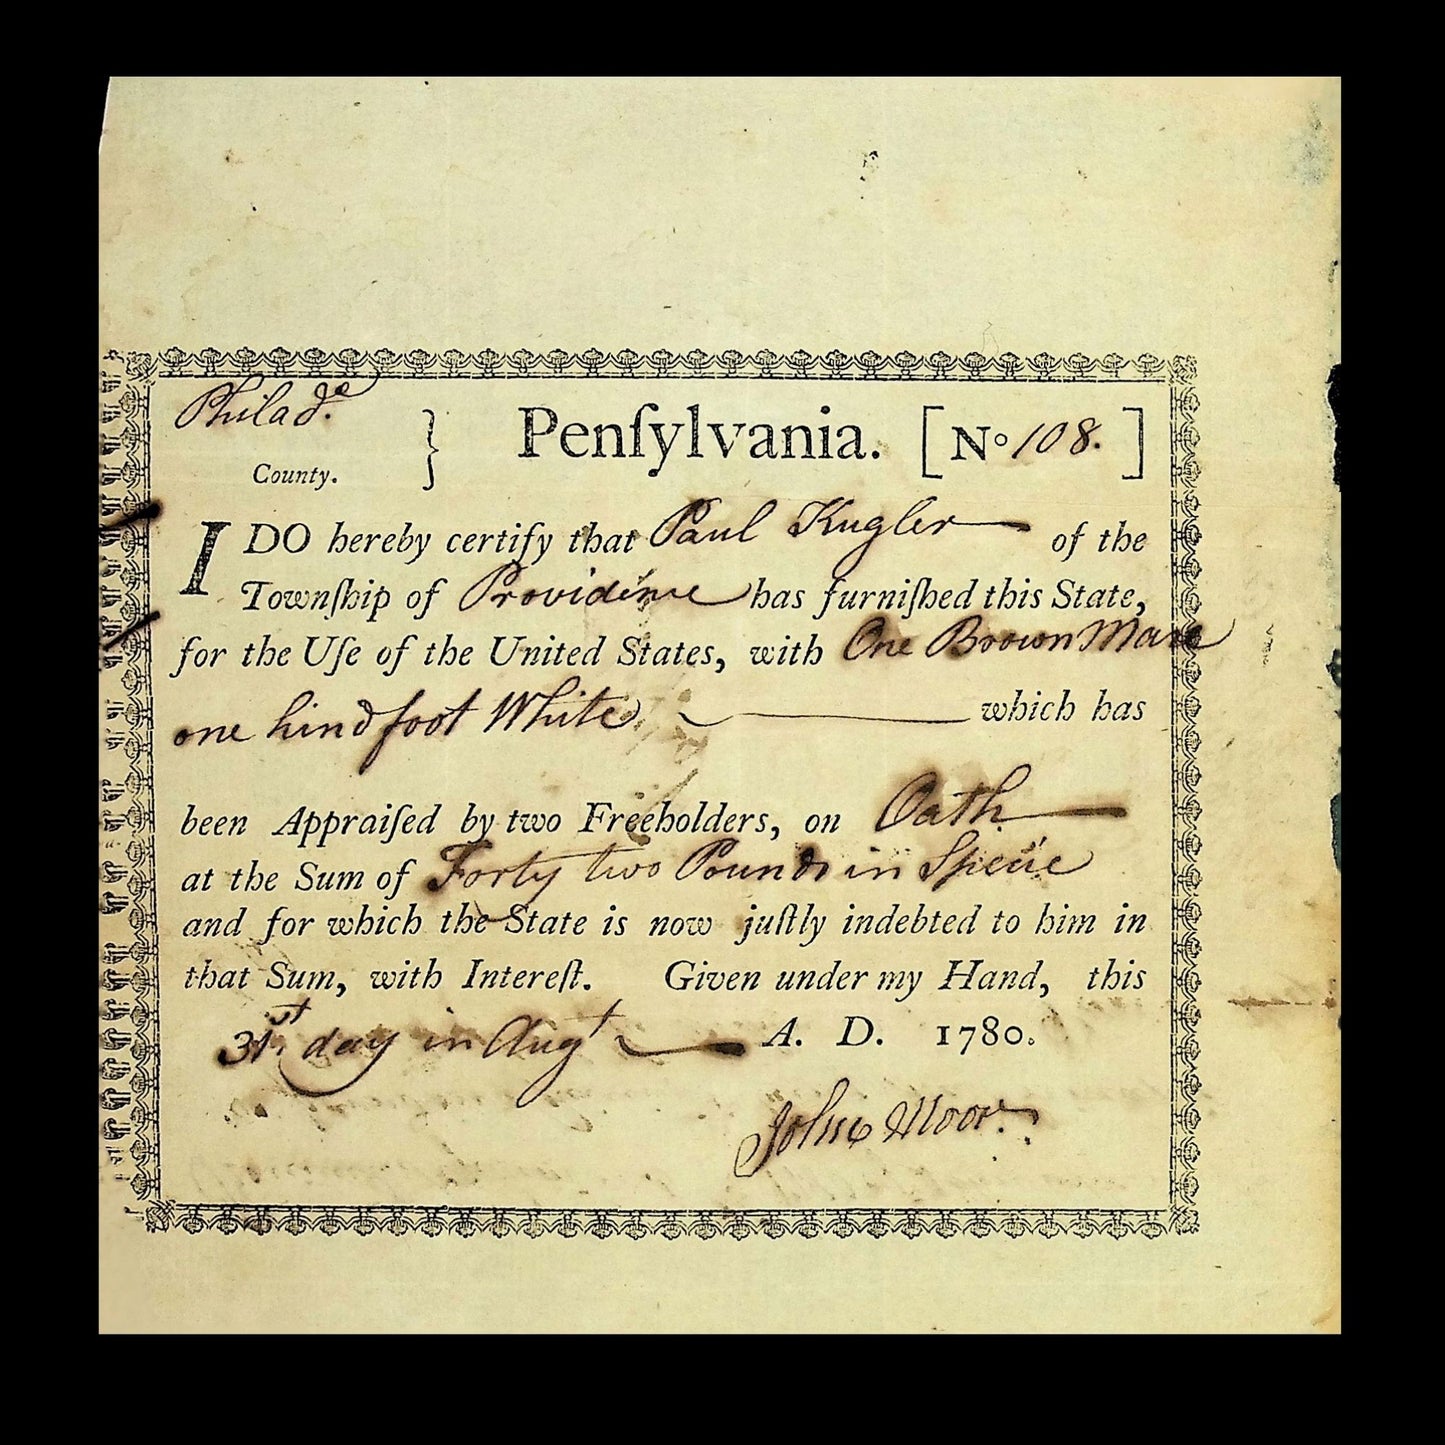 Philadᵉ.
County. } Penſylvania. [No 108.]
I DO hereby certify that Paul Kugler of the
Townſhip of Providence has furniſhed this State,
for the Uſe of the United States, with One Brown Mare
one hind foot White which has
been Appraiſed by two Freeholders, on Oath
at the Sum of Forty two Pounds in Specie
and for which the State is now juſtly indebted to him in
that Sum, with Intereſt. Given under my Hand, this
31st. day in Augt A. D. 1780.
John Moor.